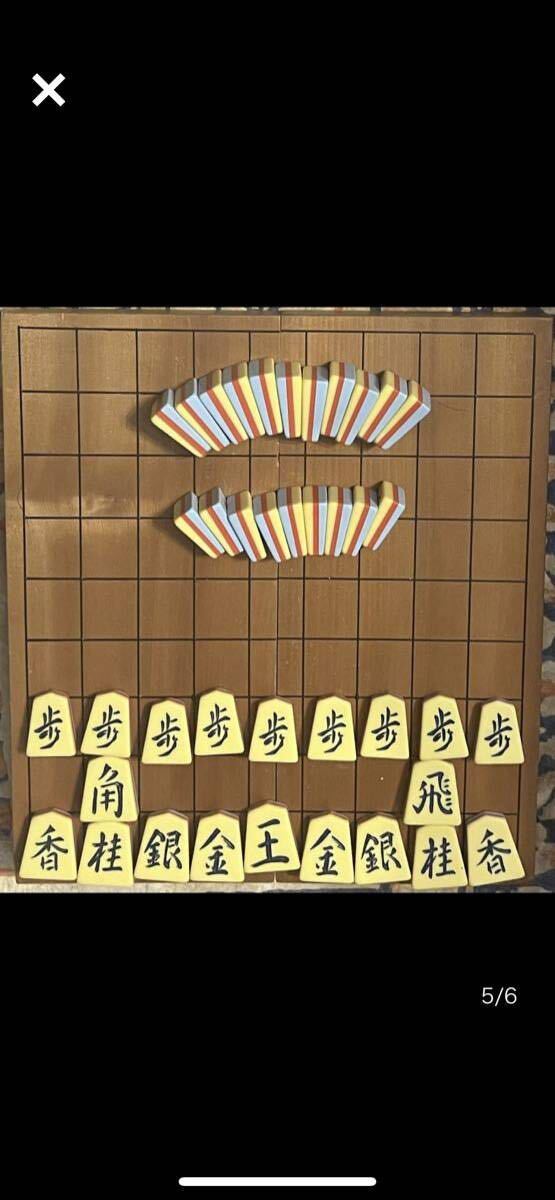 歩 歩 歩 歩 歩 歩 歩 歩 歩
角 飛
香 桂 銀 金 王 金 銀 桂 香
5/6